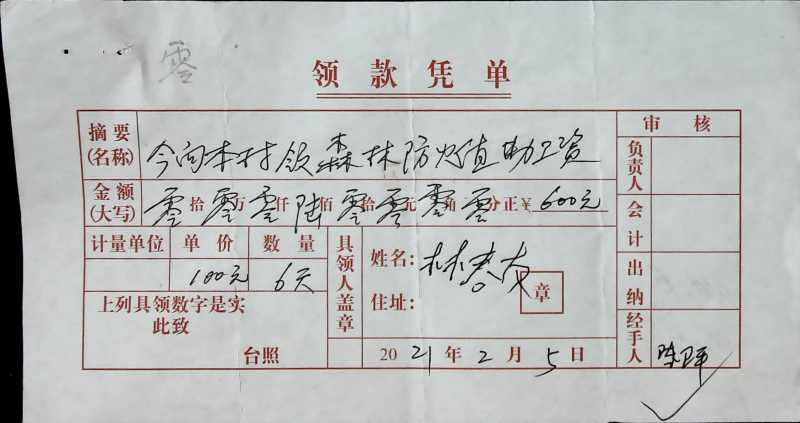 零
领款凭单
摘要(名称) 今向本村领森林防火值勤工资
审核
负责人
金额(大写) 零拾零万零仟陆佰零拾零元零角零分正¥600元
会计
计量单位 单价 数量
100元 6天
具领人盖章
姓名:林
住址:
章
出纳
上列具领数字是实
此致
台照
2021年2月5日
经手人 陈卫平